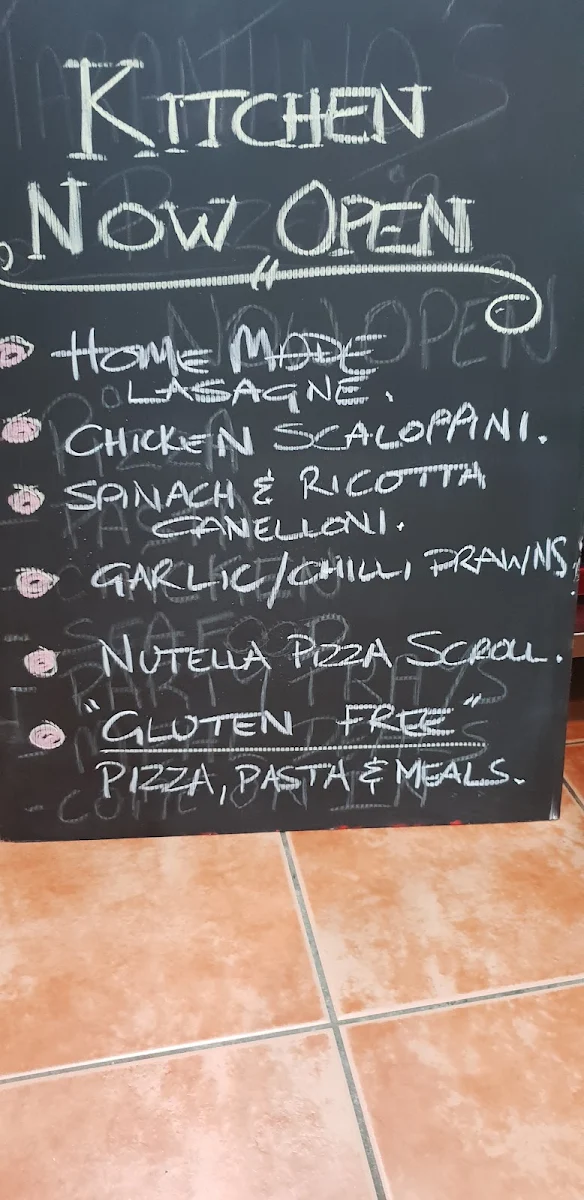 KITCHEN
NOW OPEN
HOME MADE
LASAGNE.
CHICKEN SCALOPPINI.
SPINACH & RICOTTA
CANELLONI.
GARLIC/CHILLI PRAWNS.
NUTELLA PIZZA SCROLL.
"GLUTEN FREE"
PIZZA, PASTA & MEALS.